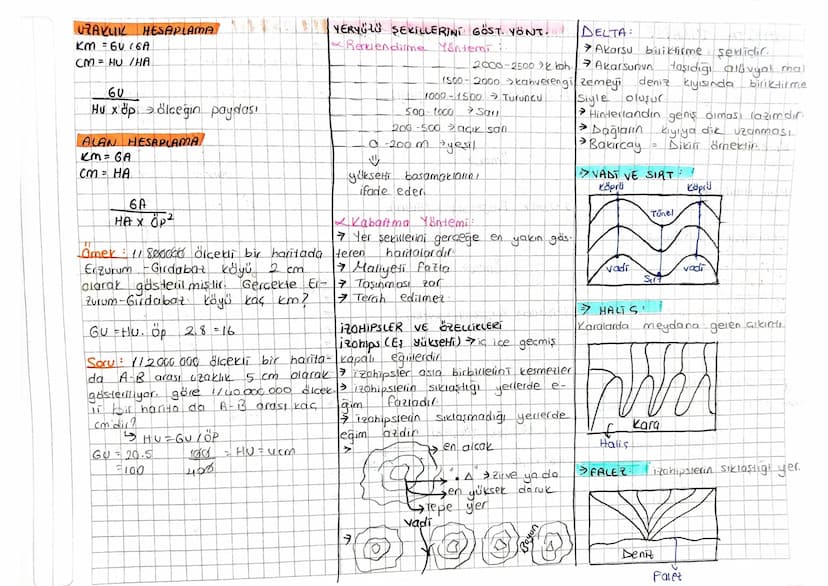 UZAKLIK HESAPLAMA
KM = GU / GA
CM = HU / HA
GU
HU x ÖP → ölçeğin paydası
ALAN HESAPLAMA
KM = GA
CM = HA
GA
HA x ÖP²
Örnek : 1/800000 ölçekli bir haritada
Erzurum - Girdabaz köyü 2 cm
olarak gösterilmiştir. Gerçekte Er-
zurum-Girdabaz köyü kaç km?
GU = HU . ÖP 2.8 = 16
Soru : 1/2000 000 ölçekli bir harita-
da A-B arası uzaklık 5 cm olarak
gösteriliyor. göre 1/40.000.000 ölçek
li bir harita da A-B arası kaç
cm'dir?
↳ HU = GU / ÖP
GU = 20.5 = HU = 4cm
= 100
YERYÜZÜ ŞEKİLLERİNİ GÖST. YÖNT.
Renklendirme Yöntemi :
2000-2500 → k.kah
1500 - 2000 → kahverengi
1000 - 1500 → Turuncu
500 - 1000 → Sarı
200 - 500 → açık sarı
0 - 200 m → yeşil
⇓
yükselti basamaklarını
ifade eder.
Kabartma Yöntemi :
→ Yer şekillerini gerçeğe en yakın gös-
teren haritalardır.
→ Maliyeti fazla
→ Taşınması zor
→ Terah edilmez.
İZOHİPSLER VE ÖZELLİKLERİ
izohips (Eş yükselti) → iç içe geçmiş
kapalı eğrilerdir.
→ izohipsler asla birbirlerini kesmezler
→ izohipslerin sıklaştığı yerlerde e-
ğim fazladır.
→ izohipslerin sıklaşmadığı yerlerde
eğim azdır.
→ en alçak
• Δ → zirve ya da
en yüksek doruk
Tepe yer
vadi
→
Boyun
DELTA :
→ Akarsu biriktirme şeklidir.
→ Akarsunun taşıdığı alüvyal mal
zemeyi deniz kıyısında biriktirme
siyle oluşur
→ Hinterlandın geniş olması lazımdır
→ Dağların kıyıya dik uzanması.
→ Bakırçay = Dikili örnektir.
→ VADİ VE SIRT :
Köprü Köprü
Tünel
vadi vadi
Sırt
→ HALİÇ :
Karalarda meydana gelen çıkıntı.
Kara
Haliç
→ FALEZ : izohipslerin sıklaştığı yer.
Deniz
Falez